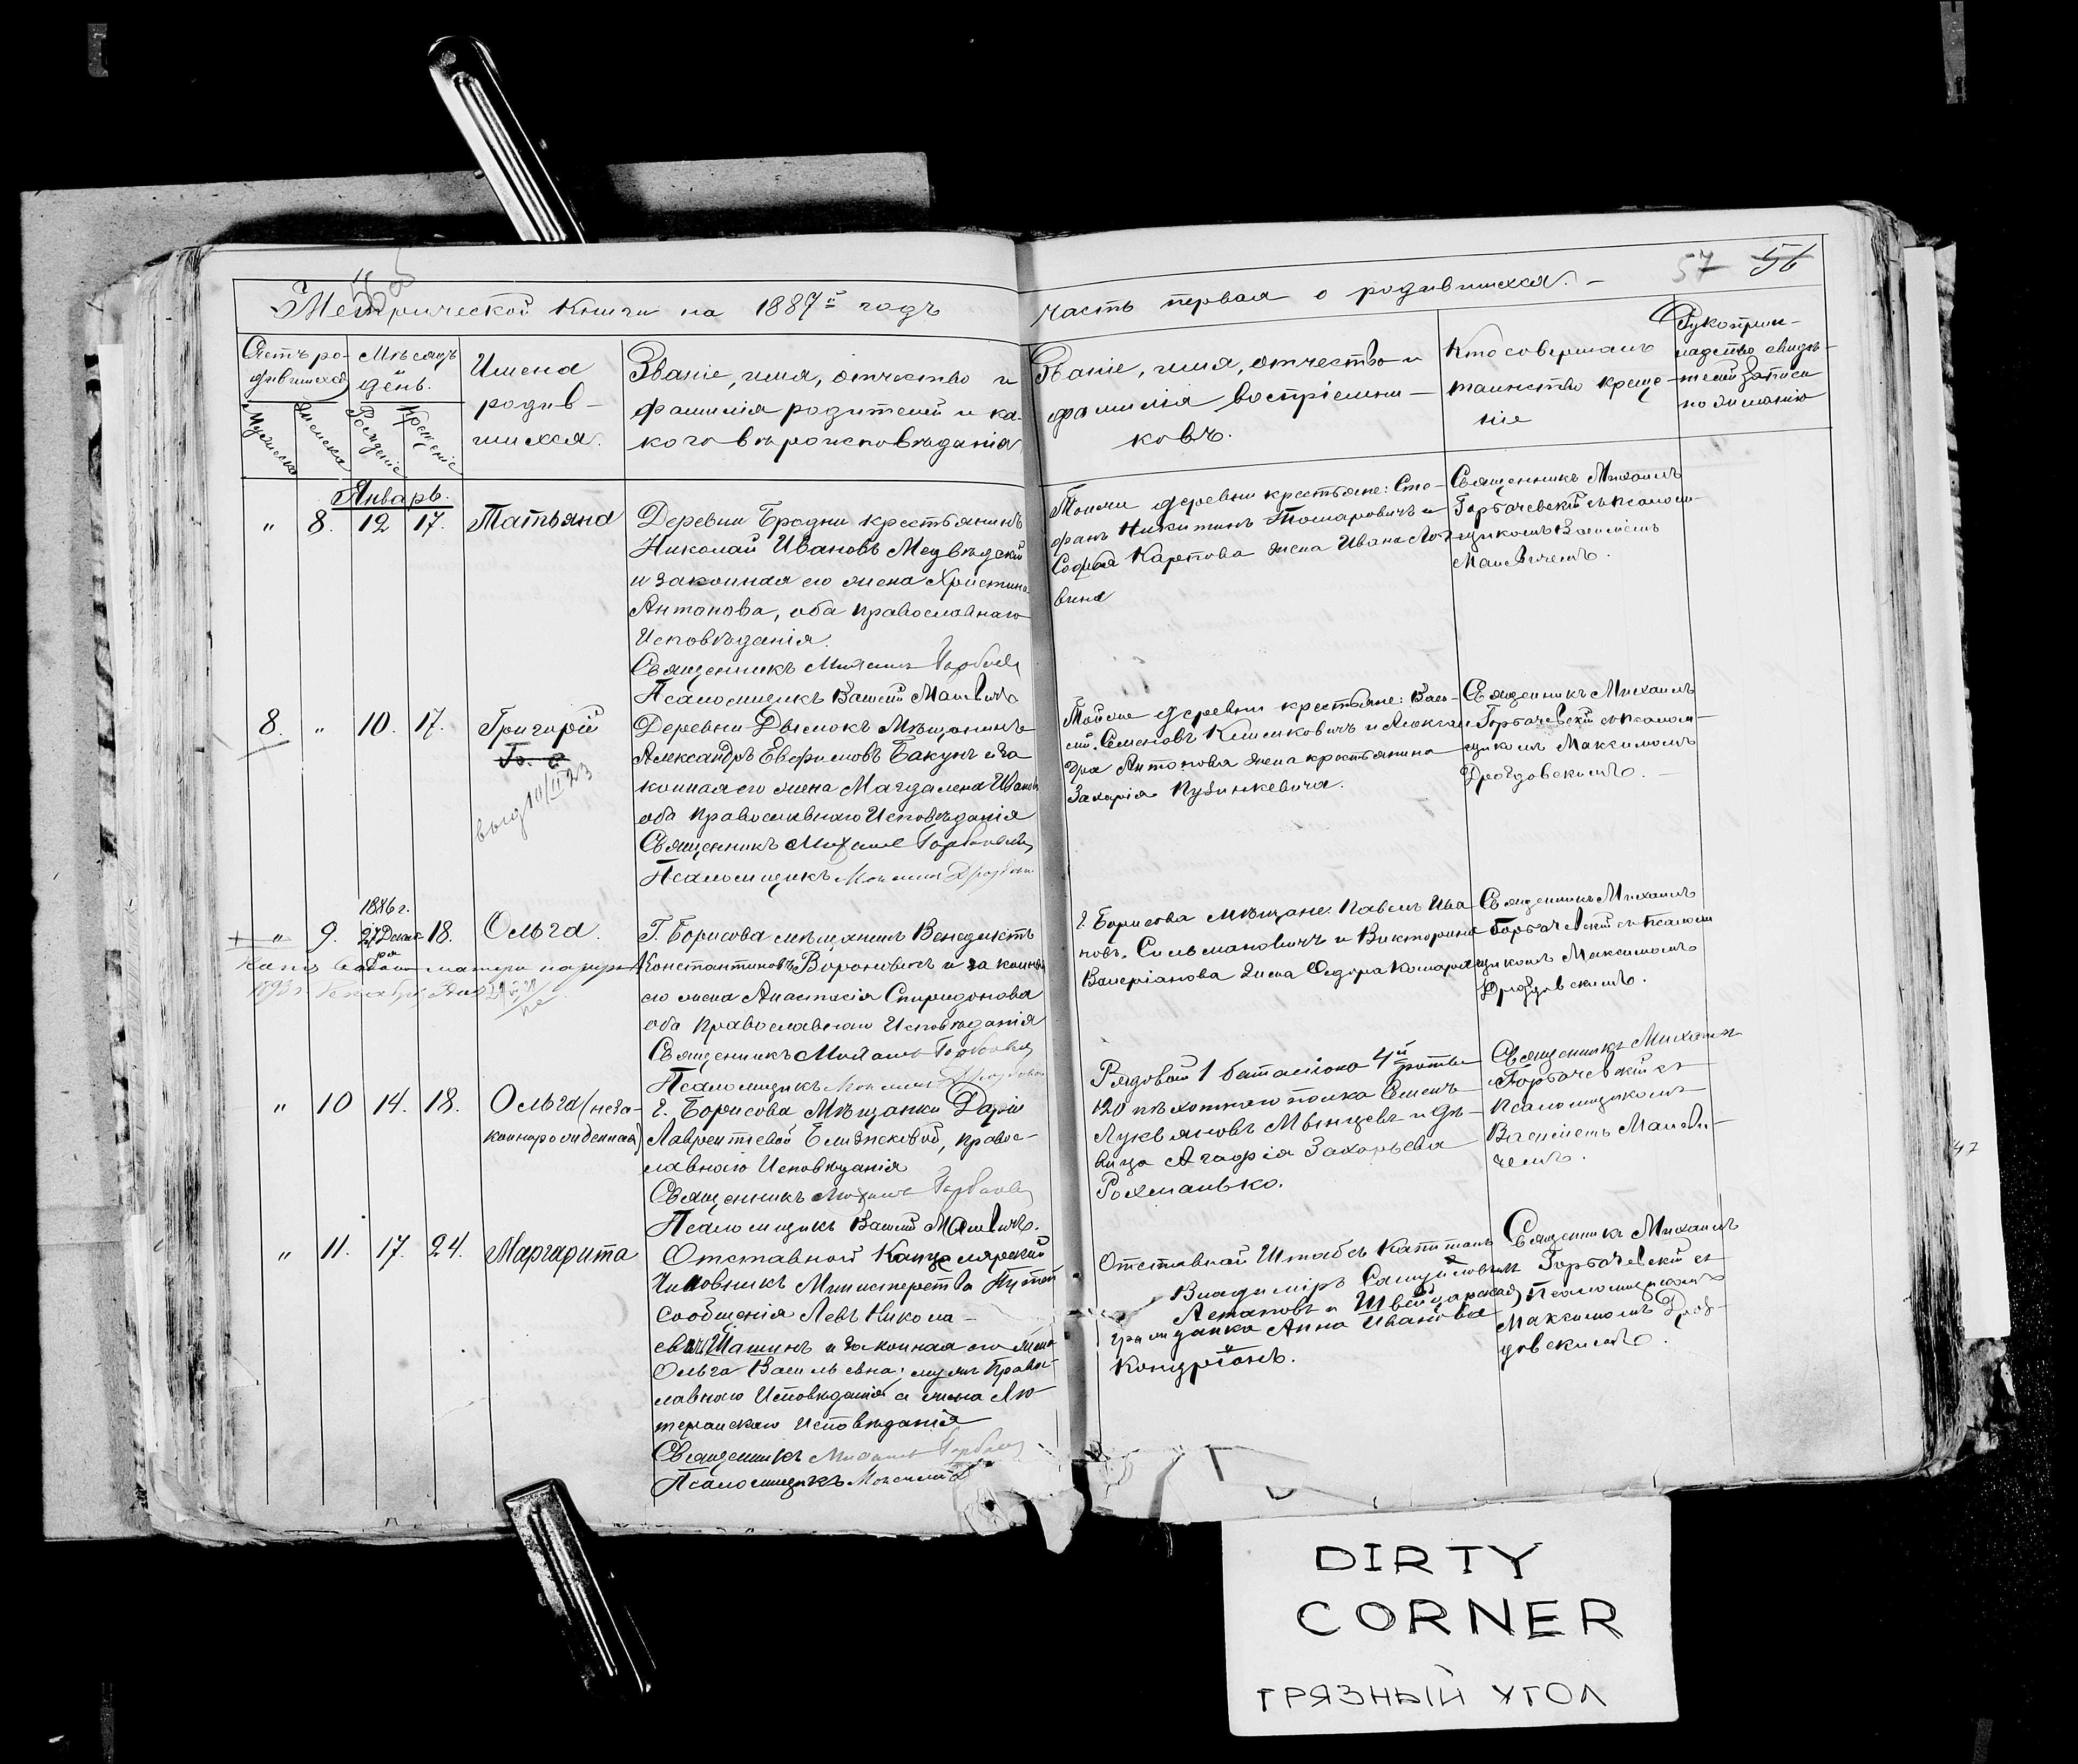 Метрической книги на 1887й годъ
часть первая о родившихся.
57 56
Счетъ ро-
дившихся
Мѣсяцъ
день.
Имена
родив-
шихся.
Званіе, имя, отчество и
фамилія родителей и ка-
кого вѣроисповѣданія
Званіе, имя, отчество и
фамилія воспріемни-
ковъ.
Кто совершалъ
таинство креще-
нія
Рукоприк-
ладство свидѣ-
телей записи
по желанію
Мужеска
Женска
Рожденіе
Крещеніе
Январь.
„ 8. 12 17. Татьяна
Деревни Бродни крестьянинъ
Николай Ивановъ Медвѣдскій
и законная его жена Христина
Антонова, оба православнаго
Исповѣданія.
Священникъ Михаилъ
Псаломщикъ Василій Малевичъ
Тойже деревни крестьяне: Сте-
фанъ Никитинъ Томаровичъ и
Софья Карпова жена Ивана
вина
Священникъ Михаилъ
Горбачевскій съ псалом-
щикомъ Василіемъ
Малевичемъ.
8. „ 10. 17. Григорій
выд 10/II 23
Деревни Дымокъ Мѣщанинъ
Александръ Евфимовъ Бакунъ и за-
конная его жена Магдалена Иванова
оба православнаго Исповѣданія
Священникъ Михаилъ
Псаломщикъ
Тойже деревни крестьяне: Васи-
лій Семеновъ Климковичъ и Алексан-
дра Антонова жена крестьянина
Захарія
Священникъ Михаилъ
Горбачевскій съ псалом-
щикомъ Максимомъ
Дроздовскимъ.
1886 г.
„ 9. 27 Декаб-ря 18. Ольга.
Г. Борисова мѣщанинъ Венедиктъ
Константиновъ Вороновичъ и законная
его жена Анастасія Спиридонова
оба Православнаго Исповѣданія
Священникъ Михаилъ
Псаломщикъ
Г. Борисова мѣщане: Павелъ Ива-
новъ Сильмановичъ и Викторина
Валеріанова жена Ѳедора
Священникъ Михаилъ
Горбачевскій съ Псалом-
щикомъ Максимомъ
Дроздовскимъ.
„ 10 14. 18. Ольга (неза-
коннорожденная)
Г. Борисова Мѣщанки Даріи
Лаврентьевой правос-
лавнаго Исповѣданія
Священникъ Михаилъ
Псаломщикъ Василій Малевичъ.
Рядовой 1 баталіона 4й роты
120 пѣхотнаго полка Семенъ
Лукьяновъ и дѣ-
вица Агафія Захарьева
Рохманько.
Священникъ Михаилъ
Горбачевскій съ
псаломщикомъ
Василіемъ Малеви-
чемъ.
„ 11. 17. 24. Маргарита
Отставной Канцелярскій
Чиновникъ Министерства Путей
Сообщенія Левъ Никола-
евъ Шашинъ и законная его жена
Ольга Васильевна; мужъ Правос-
лавнаго Исповѣданія а жена Лю-
теранскаго Исповѣданія
Священникъ Михаилъ
Псаломщикъ Максимъ
Отставной Штабсъ Капитанъ
Владиміръ
Астаповъ и Швейцарская
гражданка Анна Иванова
Кондріонъ.
Священникъ Михаилъ
Горбачевскій съ
Псаломщикомъ
Максимомъ Дроз-
довскимъ.
47
DIRTY
CORNER
ГРЯЗНЫЙ УГОЛ